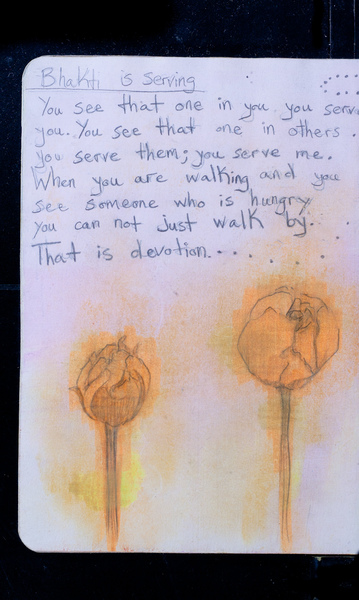 Bhakti is serving
You see that one in you you serve
you. You see that one in others.
you serve them; you serve me.
When you are walking and you
see someone who is hungry
you can not just walk by.
That is devotion....